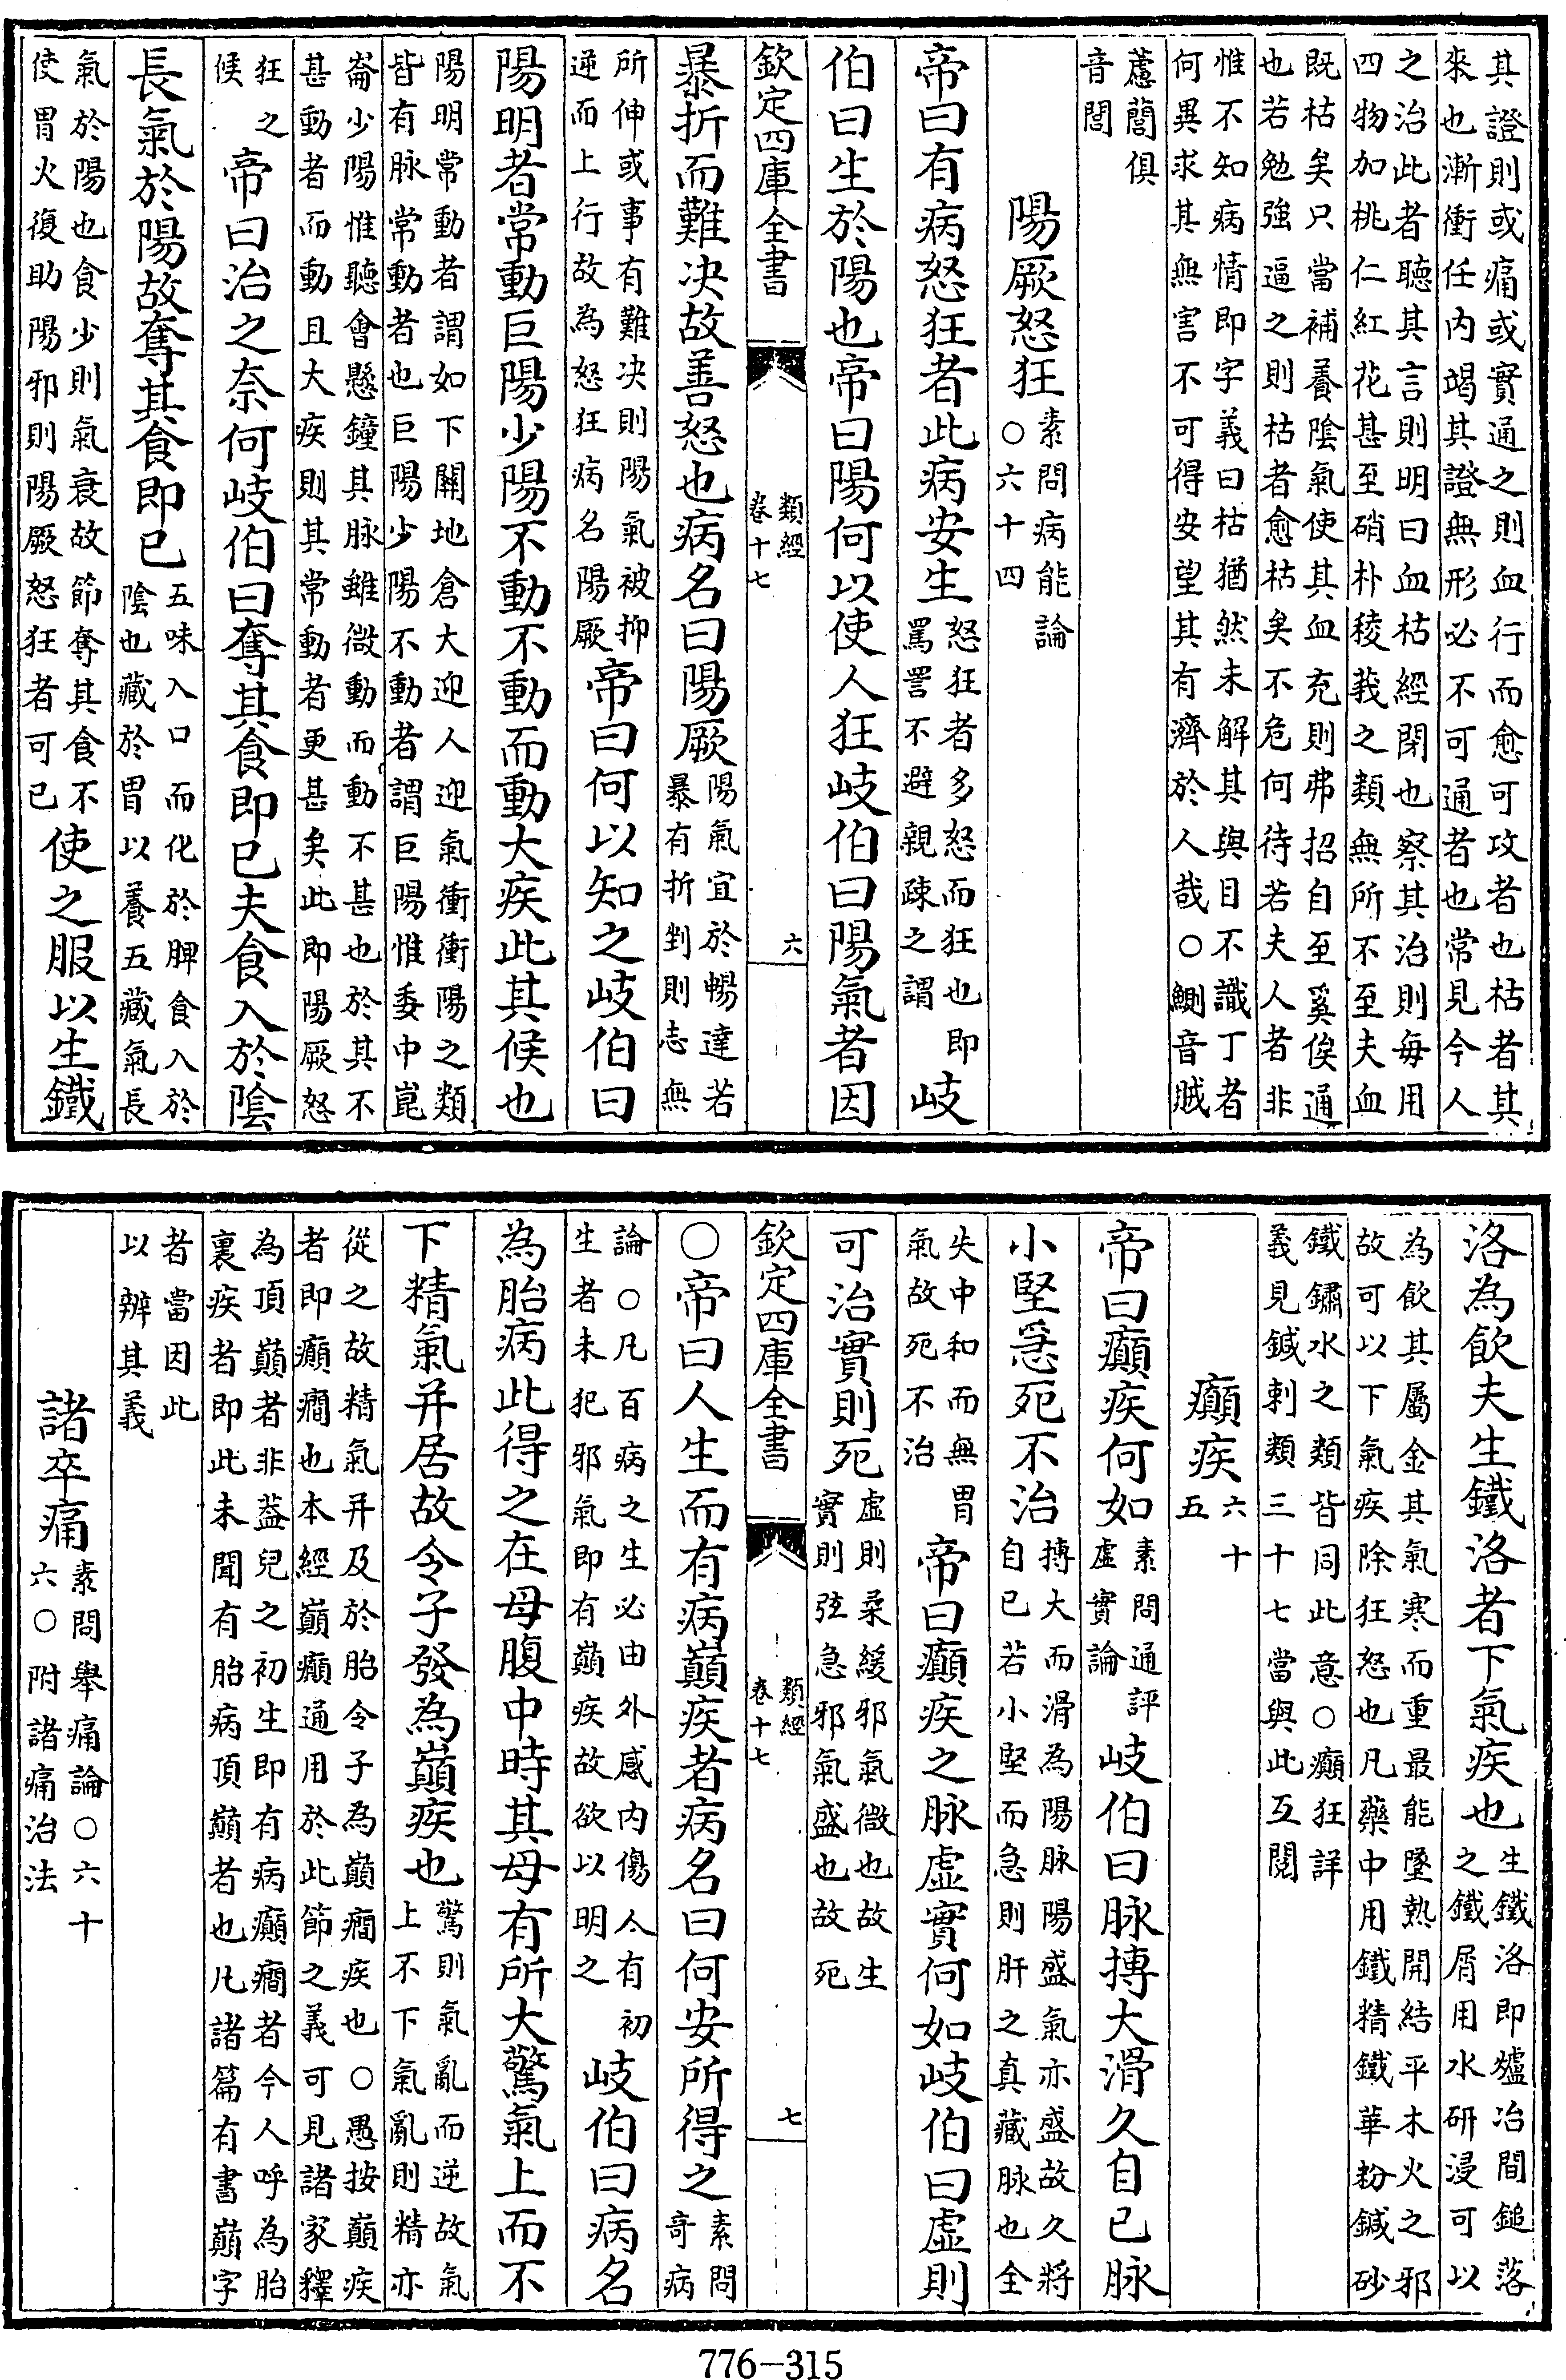 其證則或痛或實通之則血行而愈可攻者也枯者其
來也漸衝任内竭其證無形必不可通者也常見今人
之治此者聽其言則明曰血枯經閉也察其治則每用
四物加桃仁紅花甚至硝朴稜莪之類無所不至夫血
既枯矣只當補養陰氣使其血充則弗招自至奚俟通
也若勉強逼之則枯者愈枯矣不危何待若夫人者非
惟不知病情即字義曰枯猶然未解其與目不識丁者
何異求其無害不可得安望其有濟於人哉○鰂音賊
藘䕡俱
音閭
陽厥怒狂素問病能論○六十四
帝曰有病怒狂者此病安生怒狂者多怒而狂也即罵詈不避親疎之謂岐
伯曰生於陽也帝曰陽何以使人狂岐伯曰陽氣者因
欽定四庫全書 類經卷十七 六
暴折而難决故善怒也病名曰陽厥陽氣宜於暢達若暴有折剉則志無
所伸或事有難决則陽氣被抑逆而上行故為怒狂病名陽厥帝曰何以知之岐伯曰
陽明者常動巨陽少陽不動不動而動大疾此其候也
陽明常動者謂如下關地倉大迎人迎氣衝衝陽之類
皆有脉常動者也巨陽少陽不動者謂巨陽惟委中崑
崙少陽惟聽會懸鐘其脉雖微動而動不甚也於其不
甚動者而動且大疾則其常動者更甚矣此即陽厥怒
狂之候帝曰治之奈何岐伯曰奪其食即已夫食入於陰
長氣於陽故奪其食即已五味入口而化於脾食入於陰也藏於胃以養五藏氣長
氣於陽也食少則氣衰故節奪其食不使胃火復助陽邪則陽厥怒狂者可已使之服以生鐵
洛為飲夫生鐵洛者下氣疾也生鐵洛即爐冶間鎚落之鐵屑用水研浸可以
為飲其屬金其氣寒而重最能墜熱開結平木火之邪
故可以下氣疾除狂怒也凡藥中用鐵精鐵華粉鍼砂
鐵鏽水之類皆同此意○癲狂詳
義見鍼刺類三十七當與此互閱
癲疾六十五
帝曰癲疾何如素問通評虛實論岐伯曰脉搏大滑久自已脉
小堅急死不治搏大而滑為陽脉陽盛氣亦盛故久將自已若小堅而急則肝之真藏脉也全
失中和而無胃氣故死不治帝曰癲疾之脉虛實何如岐伯曰虛則
可治實則死虛則柔緩邪氣微也故生實則弦急邪氣盛也故死
欽定四庫全書 類經卷十七 七
○帝曰人生而有病巔疾者病名曰何安所得之素問奇病
論○凡百病之生必由外感内傷人有初生者未犯邪氣即有巔疾故欲以明之岐伯曰病名
為胎病此得之在母腹中時其母有所大驚氣上而不
下精氣并居故令子發為巔疾也驚則氣亂而逆故氣上不下氣亂則精亦
從之故精氣并及於胎令子為巔癎疾也○愚按巔疾
者即癲癎也本經巔癲通用於此節之義可見諸家釋
為頂巔者非葢兒之初生即有病癲癎者今人呼為胎
裏疾者即此未聞有胎病頂巔者也凡諸篇有書巔字
者當因此
以辨其義
諸卒痛素問舉痛論○六十六○附諸痛治法
776-315